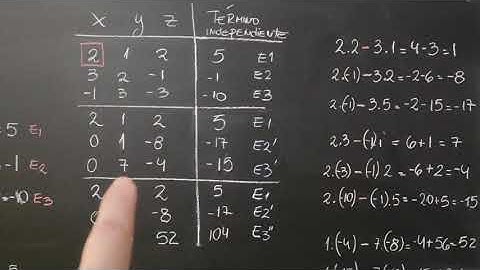 = 5 E1
-1 E2
=-10 E3
X y z TÉRMINO
INDEPENDIENTE
2 1 2 5 E1
3 2 -1 -1 E2
-1 3 -3 -10 E3
2 1 2 5 E1
0 1 -8 -17 E2'
0 7 -4 -15 E3'
2 2 5 E1
-8 -17 E2'
52 104 E3''
2.2-3.1=4-3=1
2.(-1)-3.2=-2-6=-8
2.(-1)-3.5=-2-15=-17
2.3-(-1)1=6+1=7
2.(-3)-(-1)2=-6+2=-4
2.(-10)-(-1).5=-20+5
1.(-4)-7.(-8)=-4+56=52